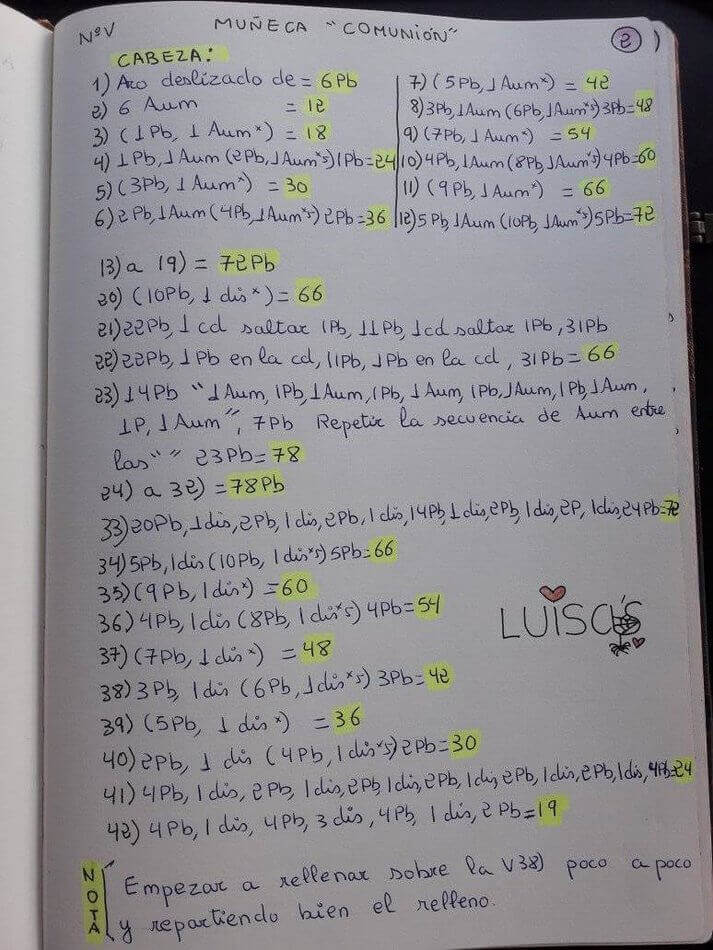 NºV MUÑECA "COMUNIÓN" 2
CABEZA:
1) Aro deslizado de = 6Pb
2) 6 Aum = 12
3) (1Pb, 1 Aum*) = 18
4) 1Pb, 1Aum (2Pb, 1Aum*5) 1Pb=24
5) (3Pb, 1Aum*) = 30
6) 2Pb, 1Aum (4Pb, 1Aum*5) 2Pb=36
7) (5Pb, 1Aum*) = 42
8) 3Pb, 1Aum (6Pb, 1Aum*5) 3Pb=48
9) (7Pb, 1Aum*) = 54
10) 4Pb, 1Aum (8Pb, 1Aum*5) 4Pb=60
11) (9Pb, 1Aum*) = 66
12) 5Pb, 1Aum (10Pb, 1Aum*5) 5Pb=72
13) a 19) = 72Pb
20) (10Pb, 1 dis*) = 66
21) 22Pb, 1 cd saltar 1Pb, 11Pb, 1cd saltar 1Pb, 31Pb
22) 22Pb, 1Pb en la cd, 11Pb, 1Pb en la cd, 31Pb = 66
23) 14Pb "1Aum, 1Pb, 1Aum, 1Pb, 1Aum, 1Pb, 1Aum, 1Pb, 1Aum,
1P, 1Aum", 7Pb Repetir la secuencia de Aum entre
las "" 23Pb=78
24) a 32) = 78Pb
33) 20Pb, 1dis, 2Pb, 1dis, 2Pb, 1dis, 14Pb, 1dis, 2Pb, 1dis, 2P, 1dis, 24Pb=72
34) 5Pb, 1dis (10Pb, 1dis*5) 5Pb=66
35) (9Pb, 1dis*) = 60
36) 4Pb, 1dis (8Pb, 1dis*5) 4Pb=54
37) (7Pb, 1dis*) = 48
38) 3Pb, 1dis (6Pb, 1dis*5) 3Pb=42
39) (5Pb, 1dis*) = 36
40) 2Pb, 1 dis (4Pb, 1dis*5) 2Pb=30
41) 4Pb, 1dis, 2Pb, 1dis, 2Pb, 1dis, 2Pb, 1dis, 2Pb, 1dis, 2Pb, 1dis, 4Pb=24
42) 4Pb, 1dis, 4Pb, 3dis, 4Pb, 1dis, 2Pb=19
LUISA'S
NOTA
Empezar a rellenar sobre la V38) poco a poco
y repartiendo bien el relleno.